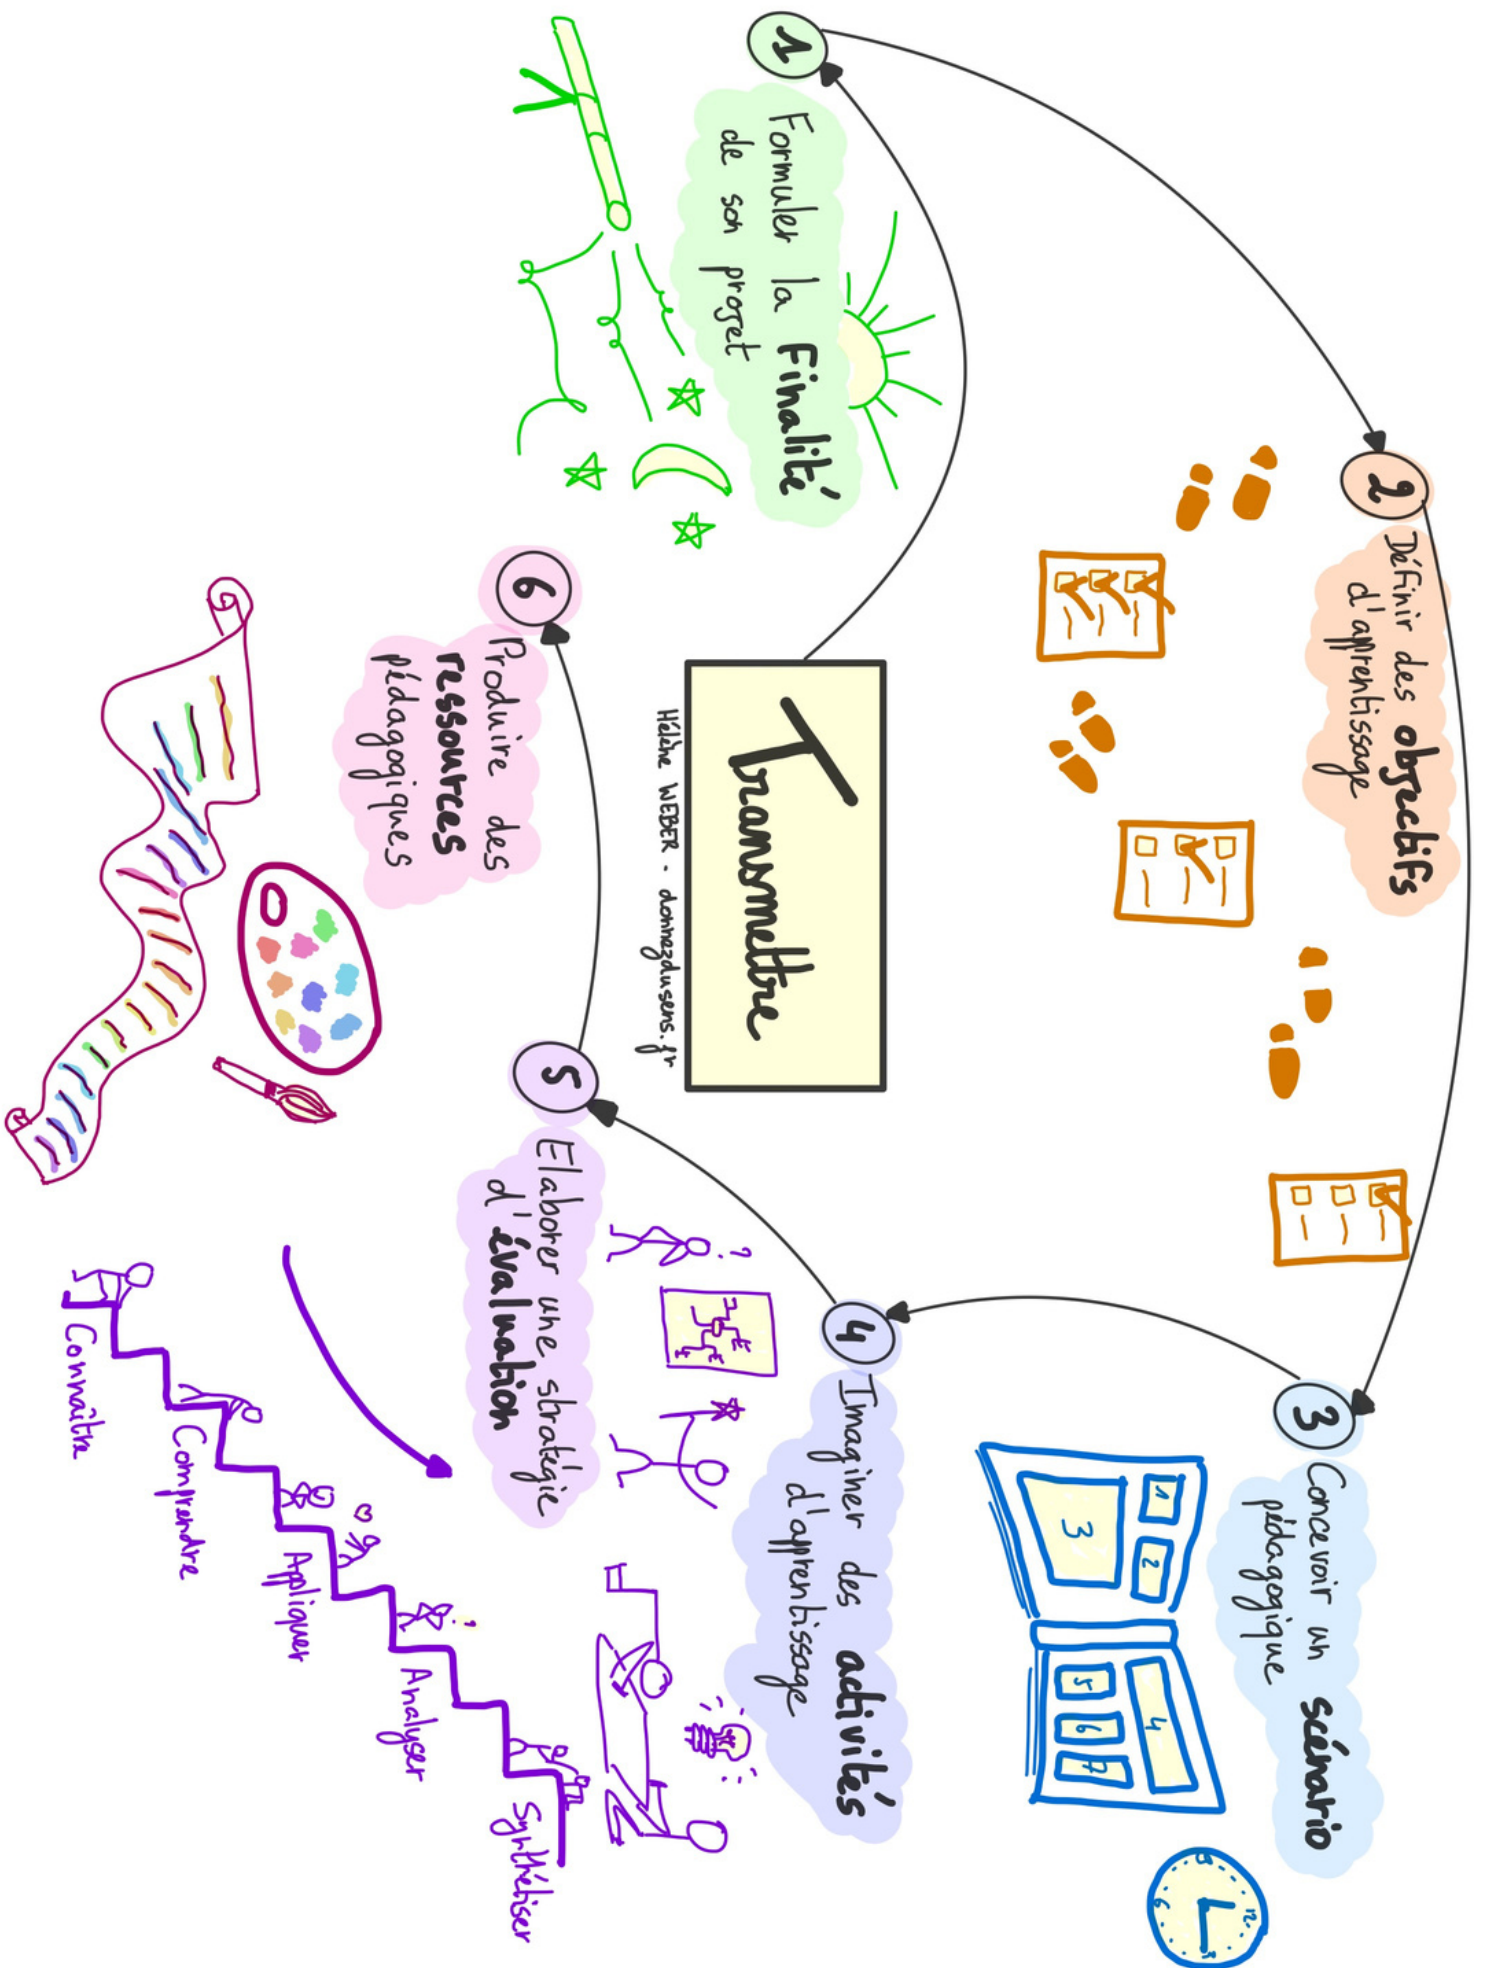 Transmettre
Hélène WEBER - donnezdusens.fr
1
Formuler la Finalité
de son projet
2
Définir des objectifs
d'apprentissage
3
Concevoir un scénario
pédagogique
1
2
3
4
5
6
7
12
3
6
9
4
Imaginer des activités
d'apprentissage
?
5
Elaborer une stratégie
d'évaluation
Connaître
Comprendre
Appliquer
Analyser
Synthétiser
?
6
Produire des
ressources
pédagogiques